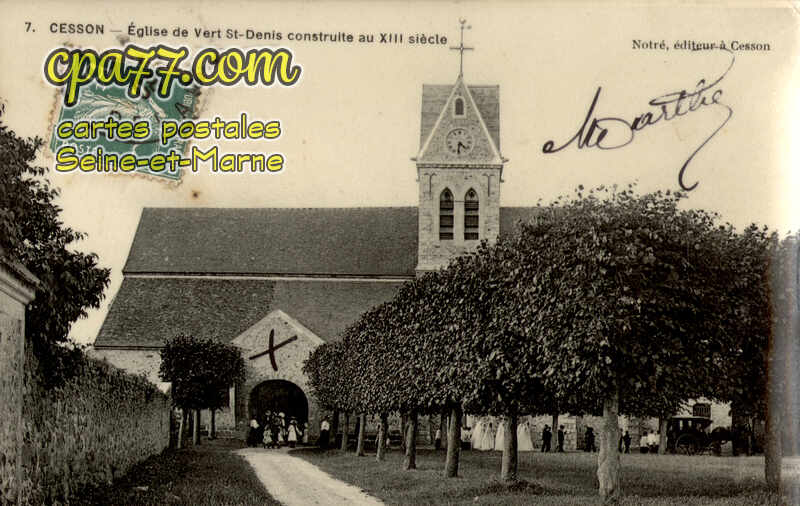 7. CESSON — Église de Vert St-Denis construite au XIII siècle
Notré, éditeur à Cesson
cpa77.com
cartes postales
Seine-et-Marne
Marthe